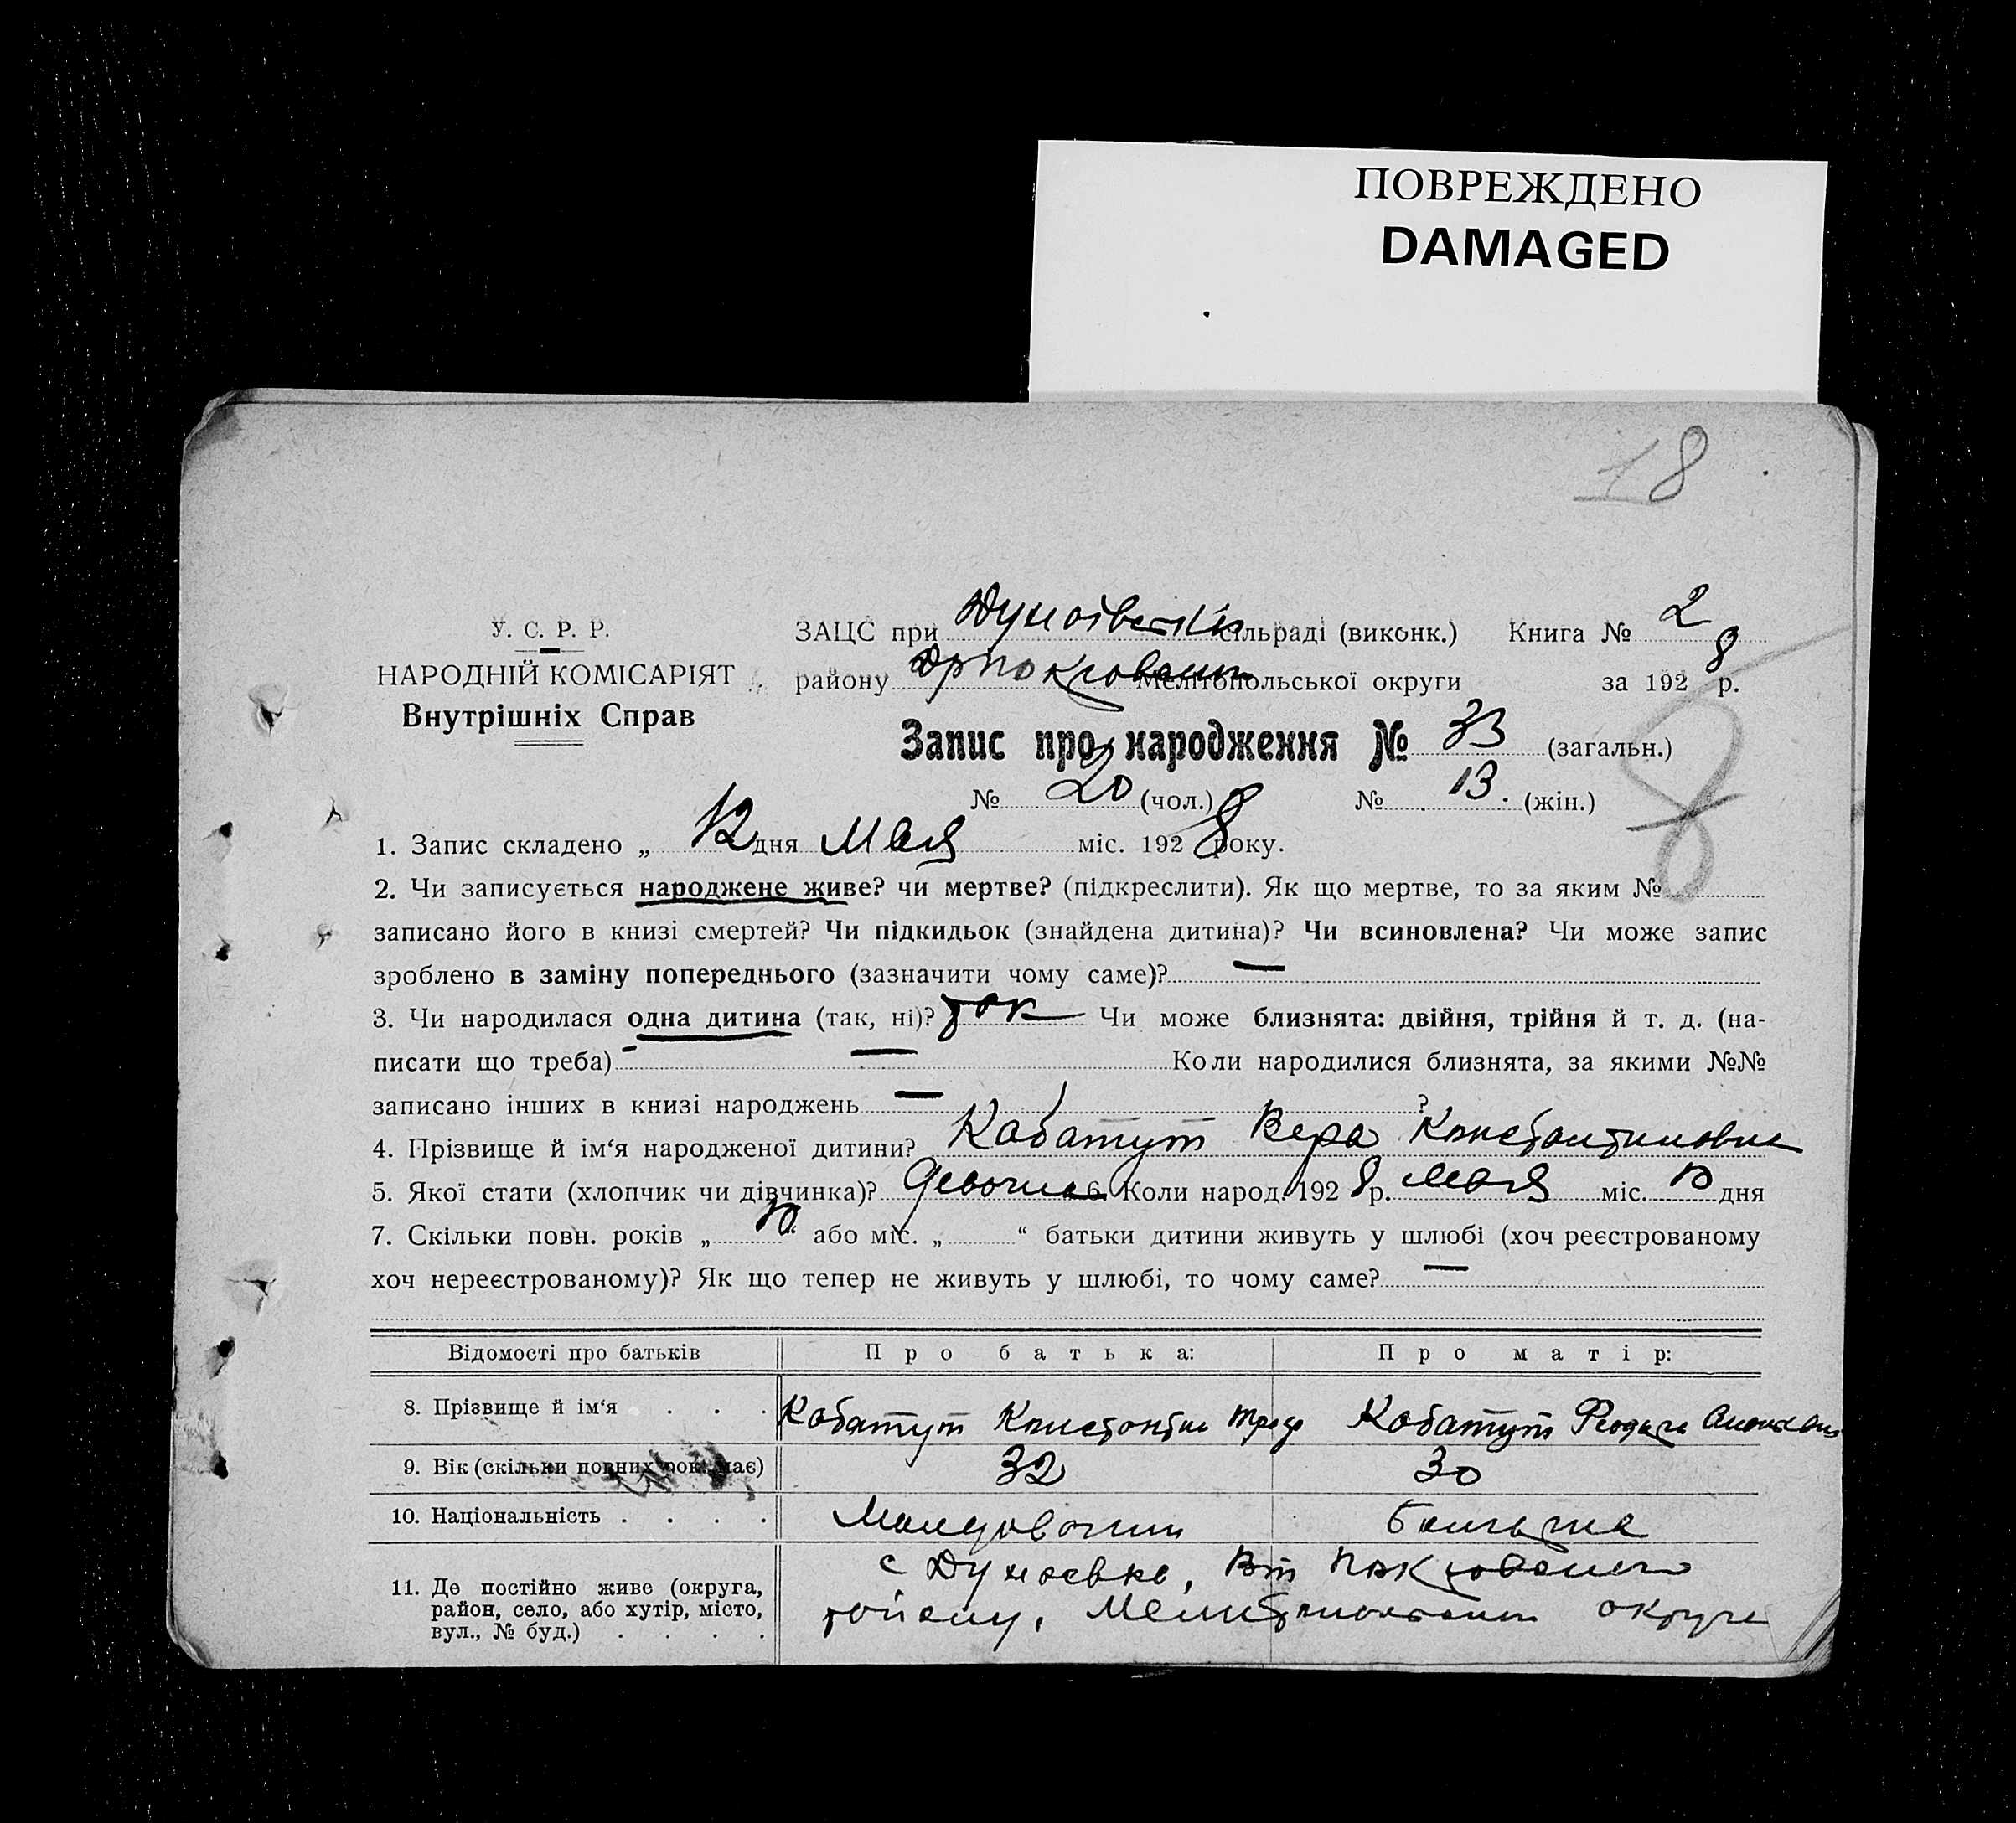 ПОВРЕЖДЕНО
DAMAGED
18
У. С. Р. Р.
НАРОДНІЙ КОМІСАРІЯТ
Внутрішніх Справ
ЗАЦС при сільраді (виконк.) Книга № 2
району Мелітопольської округи за 1928 р.
Запис про народження № 33 (загальн.)
№ 20 (чол.) № 13. (жін.)
8
1. Запис складено „ 12 дня Мая міс. 1928 року.
2. Чи записується народжене живе? чи мертве? (підкреслити). Як що мертве, то за яким №
записано його в книзі смертей? Чи підкидьок (знайдена дитина)? Чи всиновлена? Чи може запис
зроблено в заміну попереднього (зазначити чому саме)? —
3. Чи народилася одна дитина (так, ні)? так Чи може близнята: двійня, трійня й т. д. (на-
писати що треба) — Коли народилися близнята, за якими №№
записано інших в книзі народжень — ?
4. Прізвище й ім‘я народженої дитини? Кабатут Вера Константиновна
5. Якої стати (хлопчик чи дівчинка)? 6. Коли народ. 1928 р. Мая міс. 10 дня
7. Скільки повн. років „ 10 “ або міс. „ “ батьки дитини живуть у шлюбі (хоч реєстрованому
хоч нереєстрованому)? Як що тепер не живуть у шлюбі, то чому саме? —
Відомості про батьків Про батька: Про матір:
8. Прізвище й ім‘я . . . Кабатут Константин Кабатут
9. Вік (скільки повних рок. має) 32 30
10. Національність . . . .
11. Де постійно живе (округа,
район, село, або хутір, місто,
вул., № буд.) . . . .
с Дунаевка,
району, округи